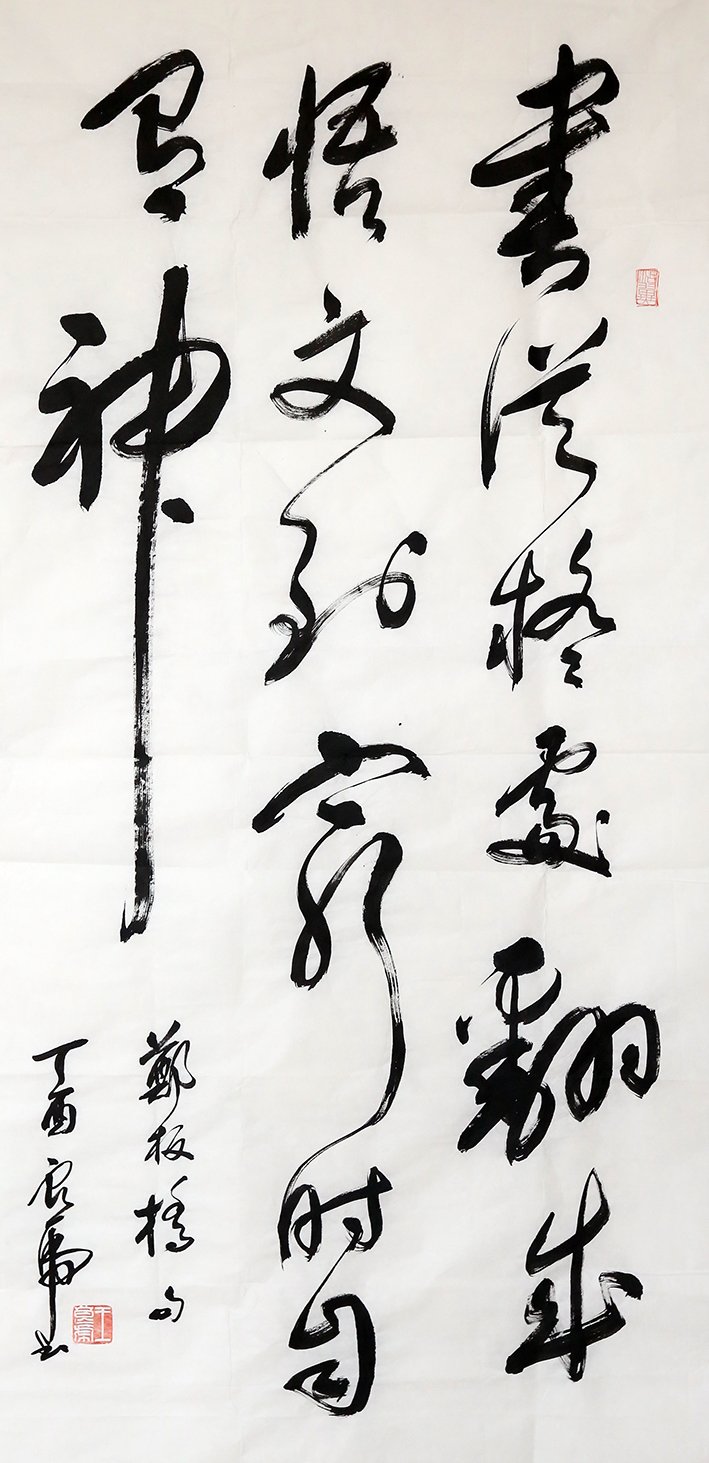 書從疑處翻成
悟文到窮时自
有神
鄭板橋句
丁酉书